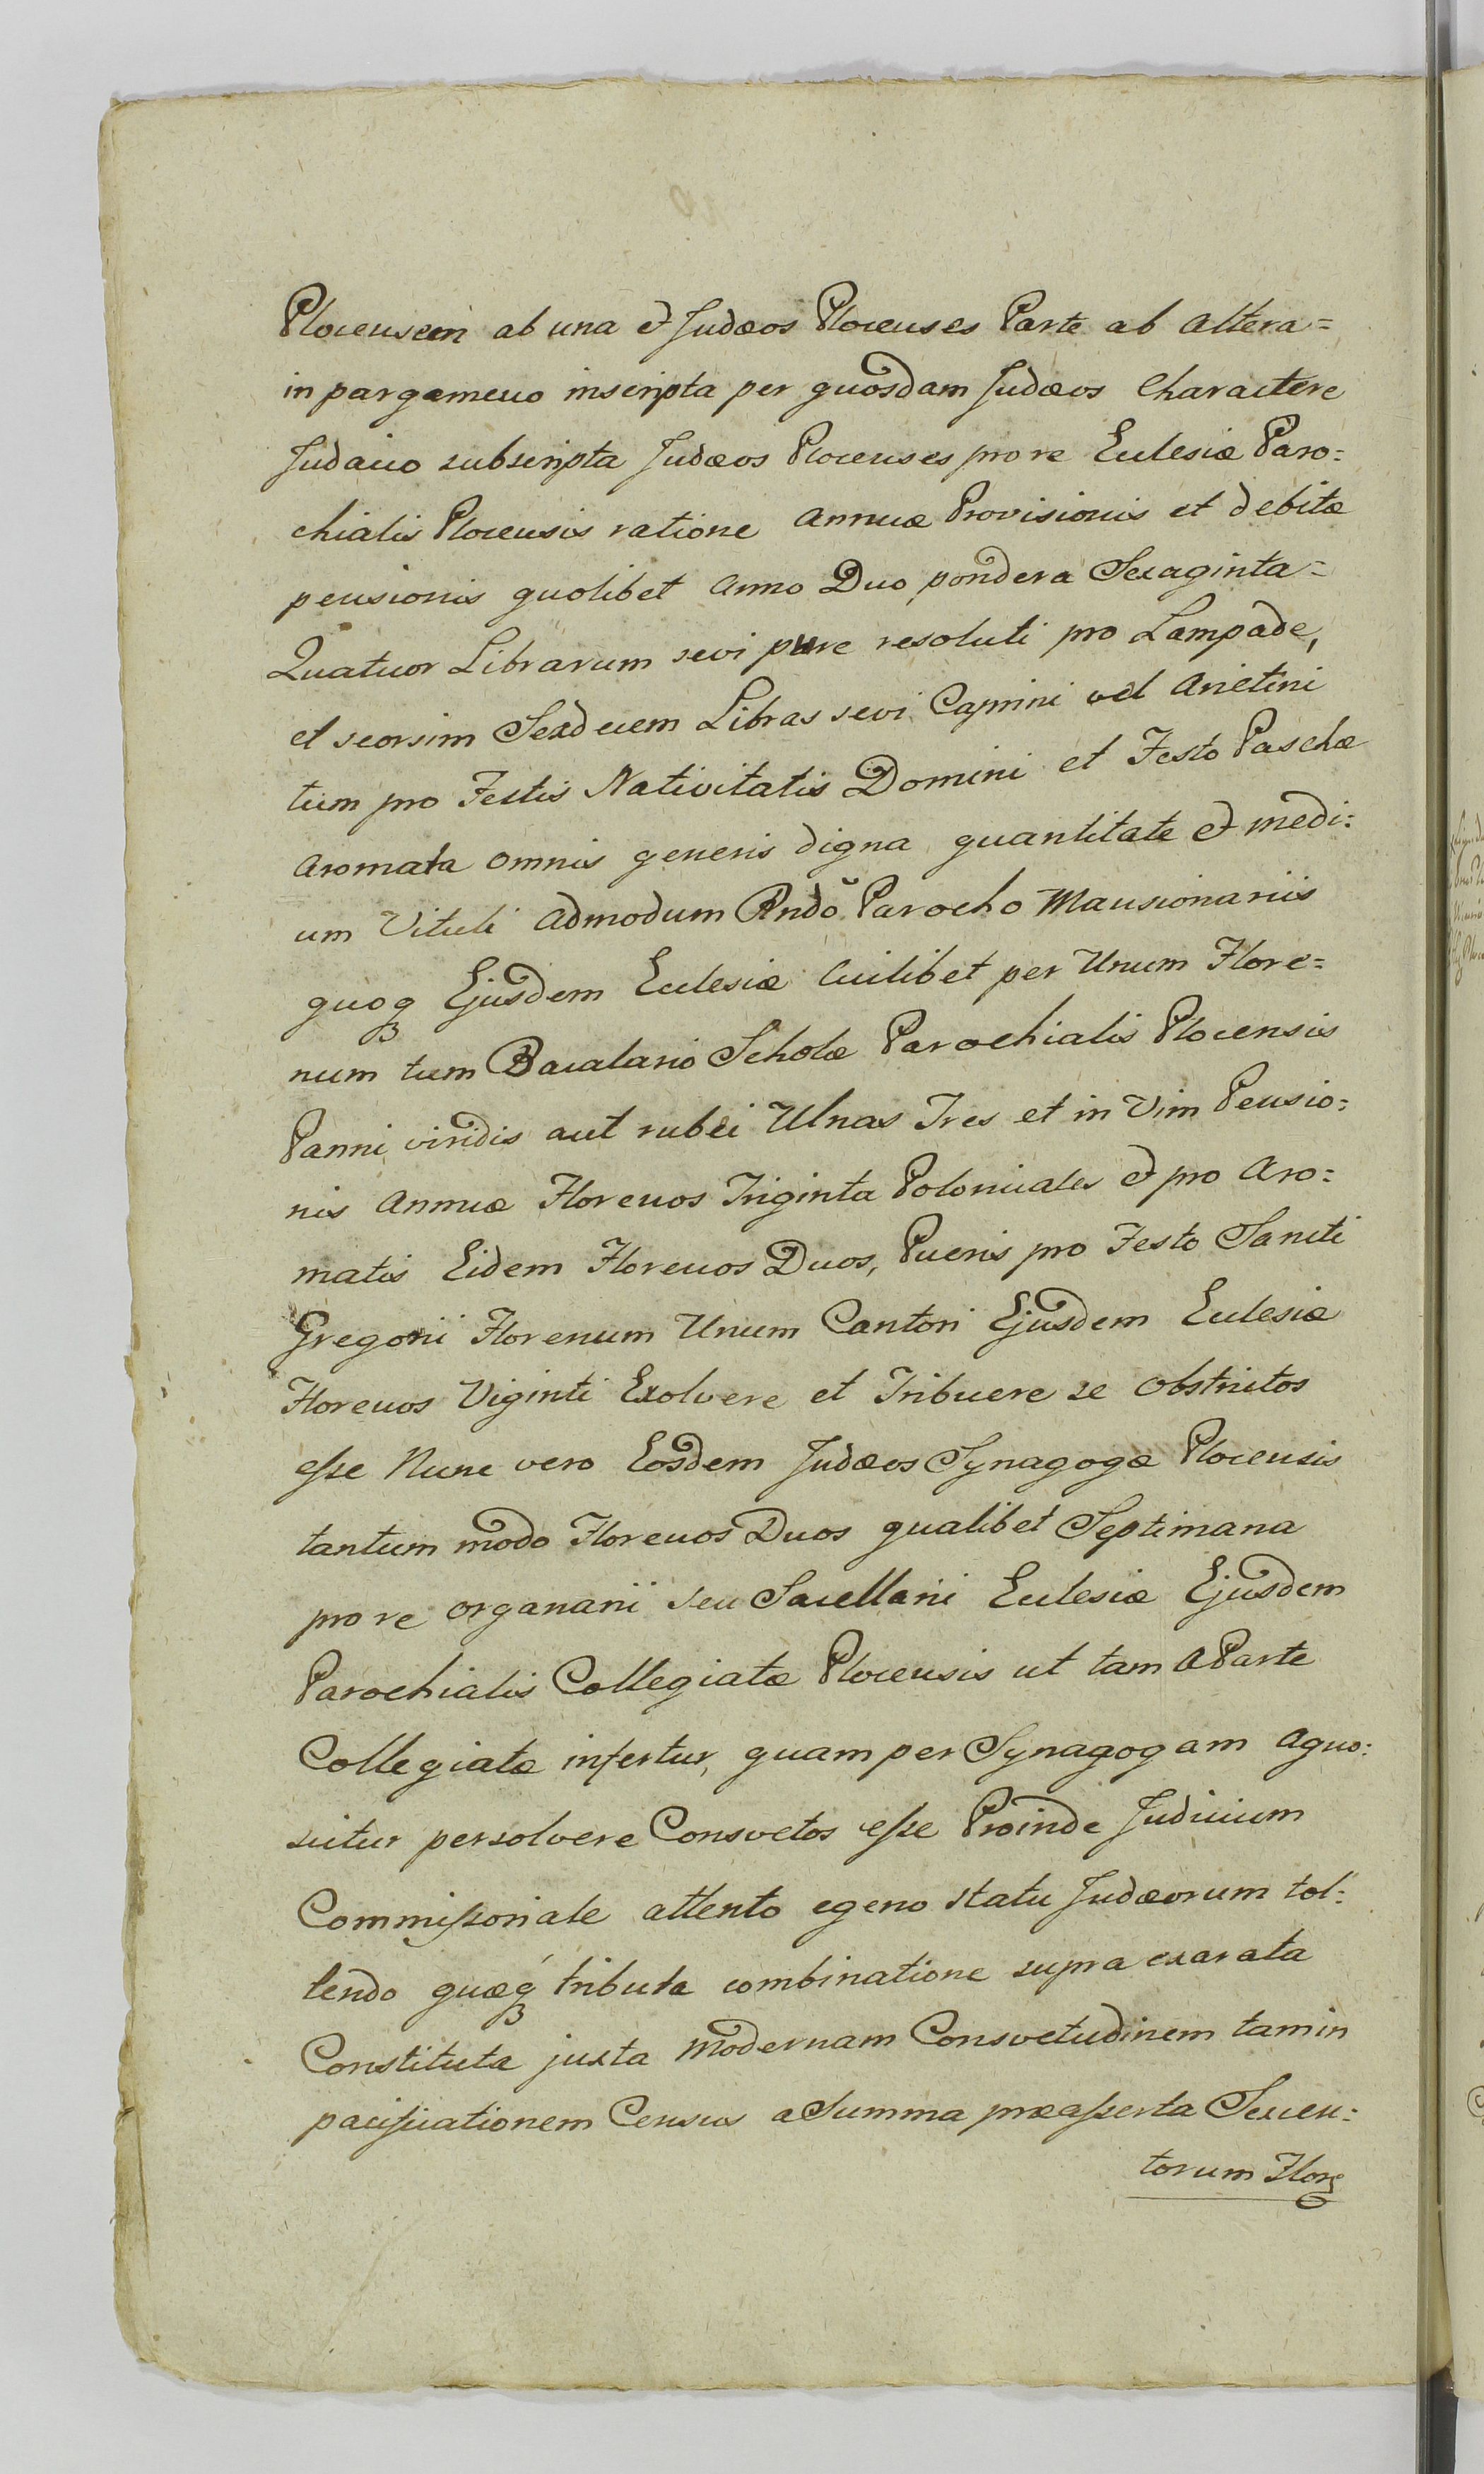 Plocensem ab una et Judæos Plocenses Parte ab altera=
in pargameno inscripta per quosdam Judæos Charactere
Judaico subscripta Judæos Plocenses pro re Ecclesiæ Paro:
chialis Plocensis ratione annuæ Provisionis et debitæ
pensionis quolibet Anno Duo pondera Sexaginta=
Quatuor Librarum sevi pure resoluti pro Lampade,
et seorsim Sexdecem Libras sevi Caprini vel Arietini
tum pro Festis Nativitatis Domini et Festo Paschæ
Aromata omnis generis digna quantitate et medi:
um Vituli Admodum Rndo Parocho Mansionariis
quoq₃ Ejusdem Ecclesiæ Cuilibet per Unum Flore=
num tum Bacalario Scholæ Parochialis Plocensis
Panni viridis aut rubei Ulnas Tres et in Vim Pensio:
nis Annuæ Florenos Triginta Polonicales et pro Aro:
matis Eidem Florenos Duos, Pueris pro Festo Sancti
Gregorii Florenum Unum Cantori Ejusdem Ecclesiæ
Florenos Viginti Exolvere et Tribuere se obstrictos
eſse Nunc vero Eosdem Judæos Synagogæ Plocensis
tantum modo Florenos Duos qualibet Septimana
pro re organarii seu Sacellani Ecclesiæ Ejusdem
Parochialis Collegiatæ Plocensis ut tam a Parte
Collegiatæ infertur, quam per Synagogam agno:
scitur persolvere Consvetos eſse Proinde Judicium
Commiſsoriale attento egeno statu Judæorum tol:
lendo quæq₃ tributa combinatione supra exarata
Constituta juxta modernam Consvetudinem tam in
pacificationem Census a Summa præaſserta Sexcen:
torum Flor